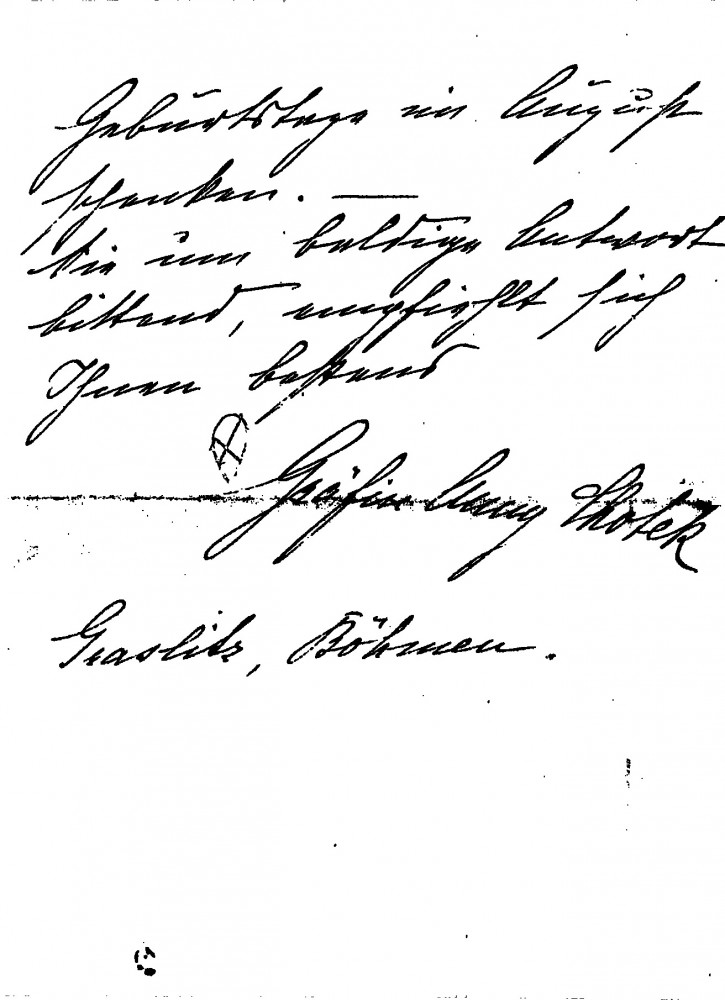 Geburtstage im August
schenken. —
Sie um baldige Antwort
bittend, empfiehlt sich
Ihnen bestens
Gräfin Anny Chotek
Graslitz, Böhmen.